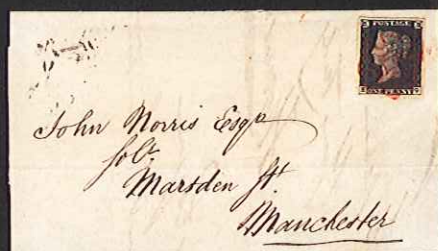 POSTAGE
ONE PENNY
John Norris Esqr
Solr
Marsden St
Manchester